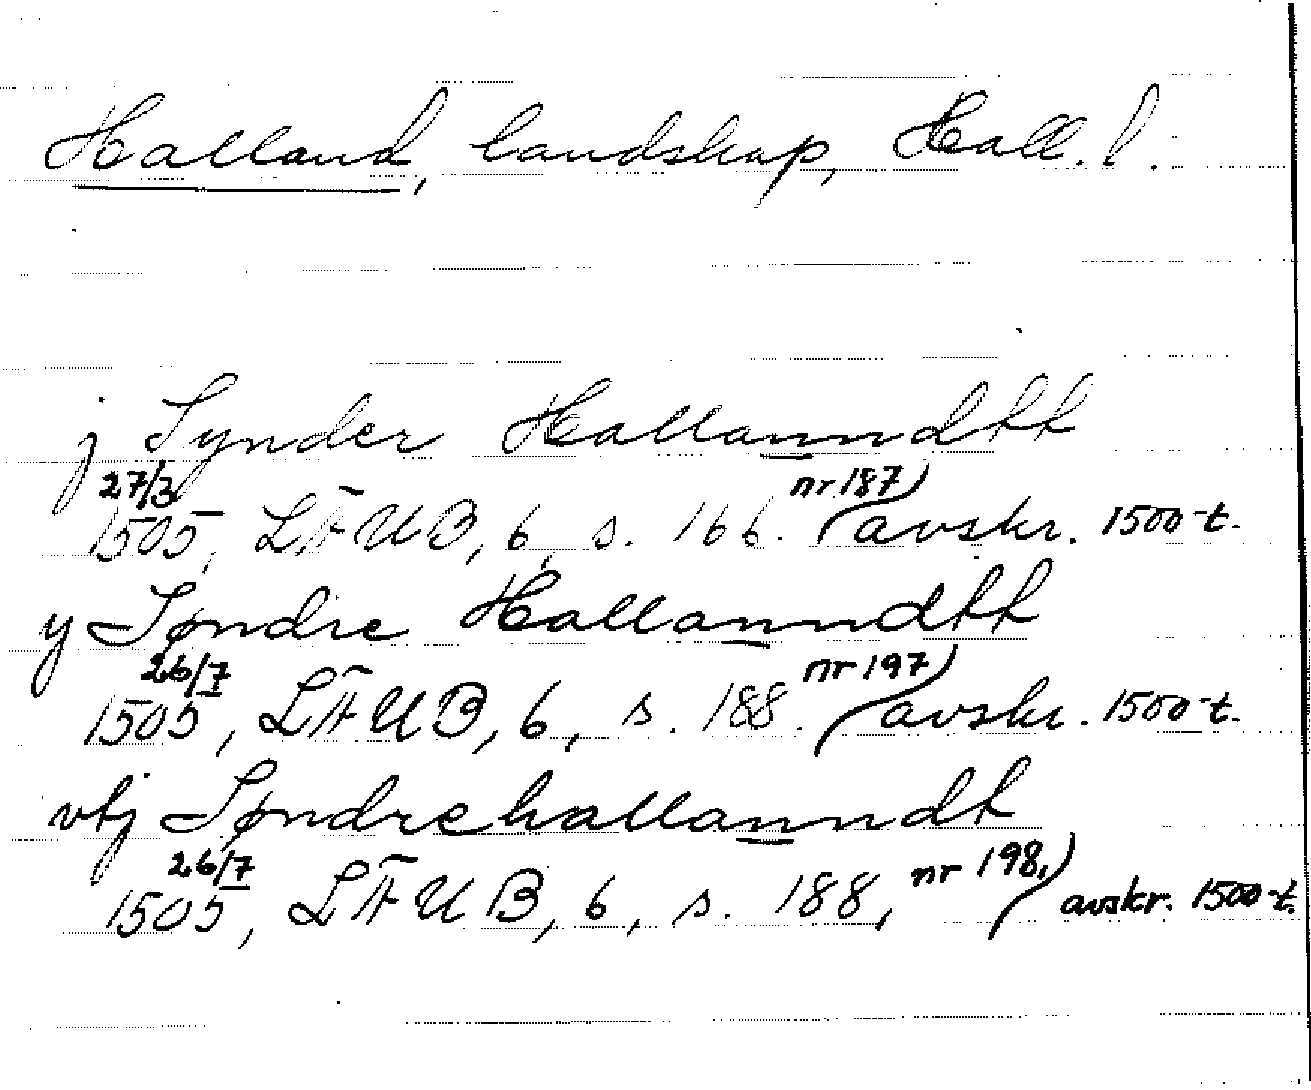 Halland, landskap, Hall. l.
j Synder Hallanndtt
27/3 1505, LÄUB, 6, s. 166. (nr 187) avskr. 1500-t.
y Søndre Hallanndtt
26/7 1505, LÄUB, 6, s. 188. (nr 197) avskr. 1500-t.
vtj Søndrehallanndt
26/7 1505, LÄUB, 6, s. 188, (nr 198,) avskr. 1500-t.